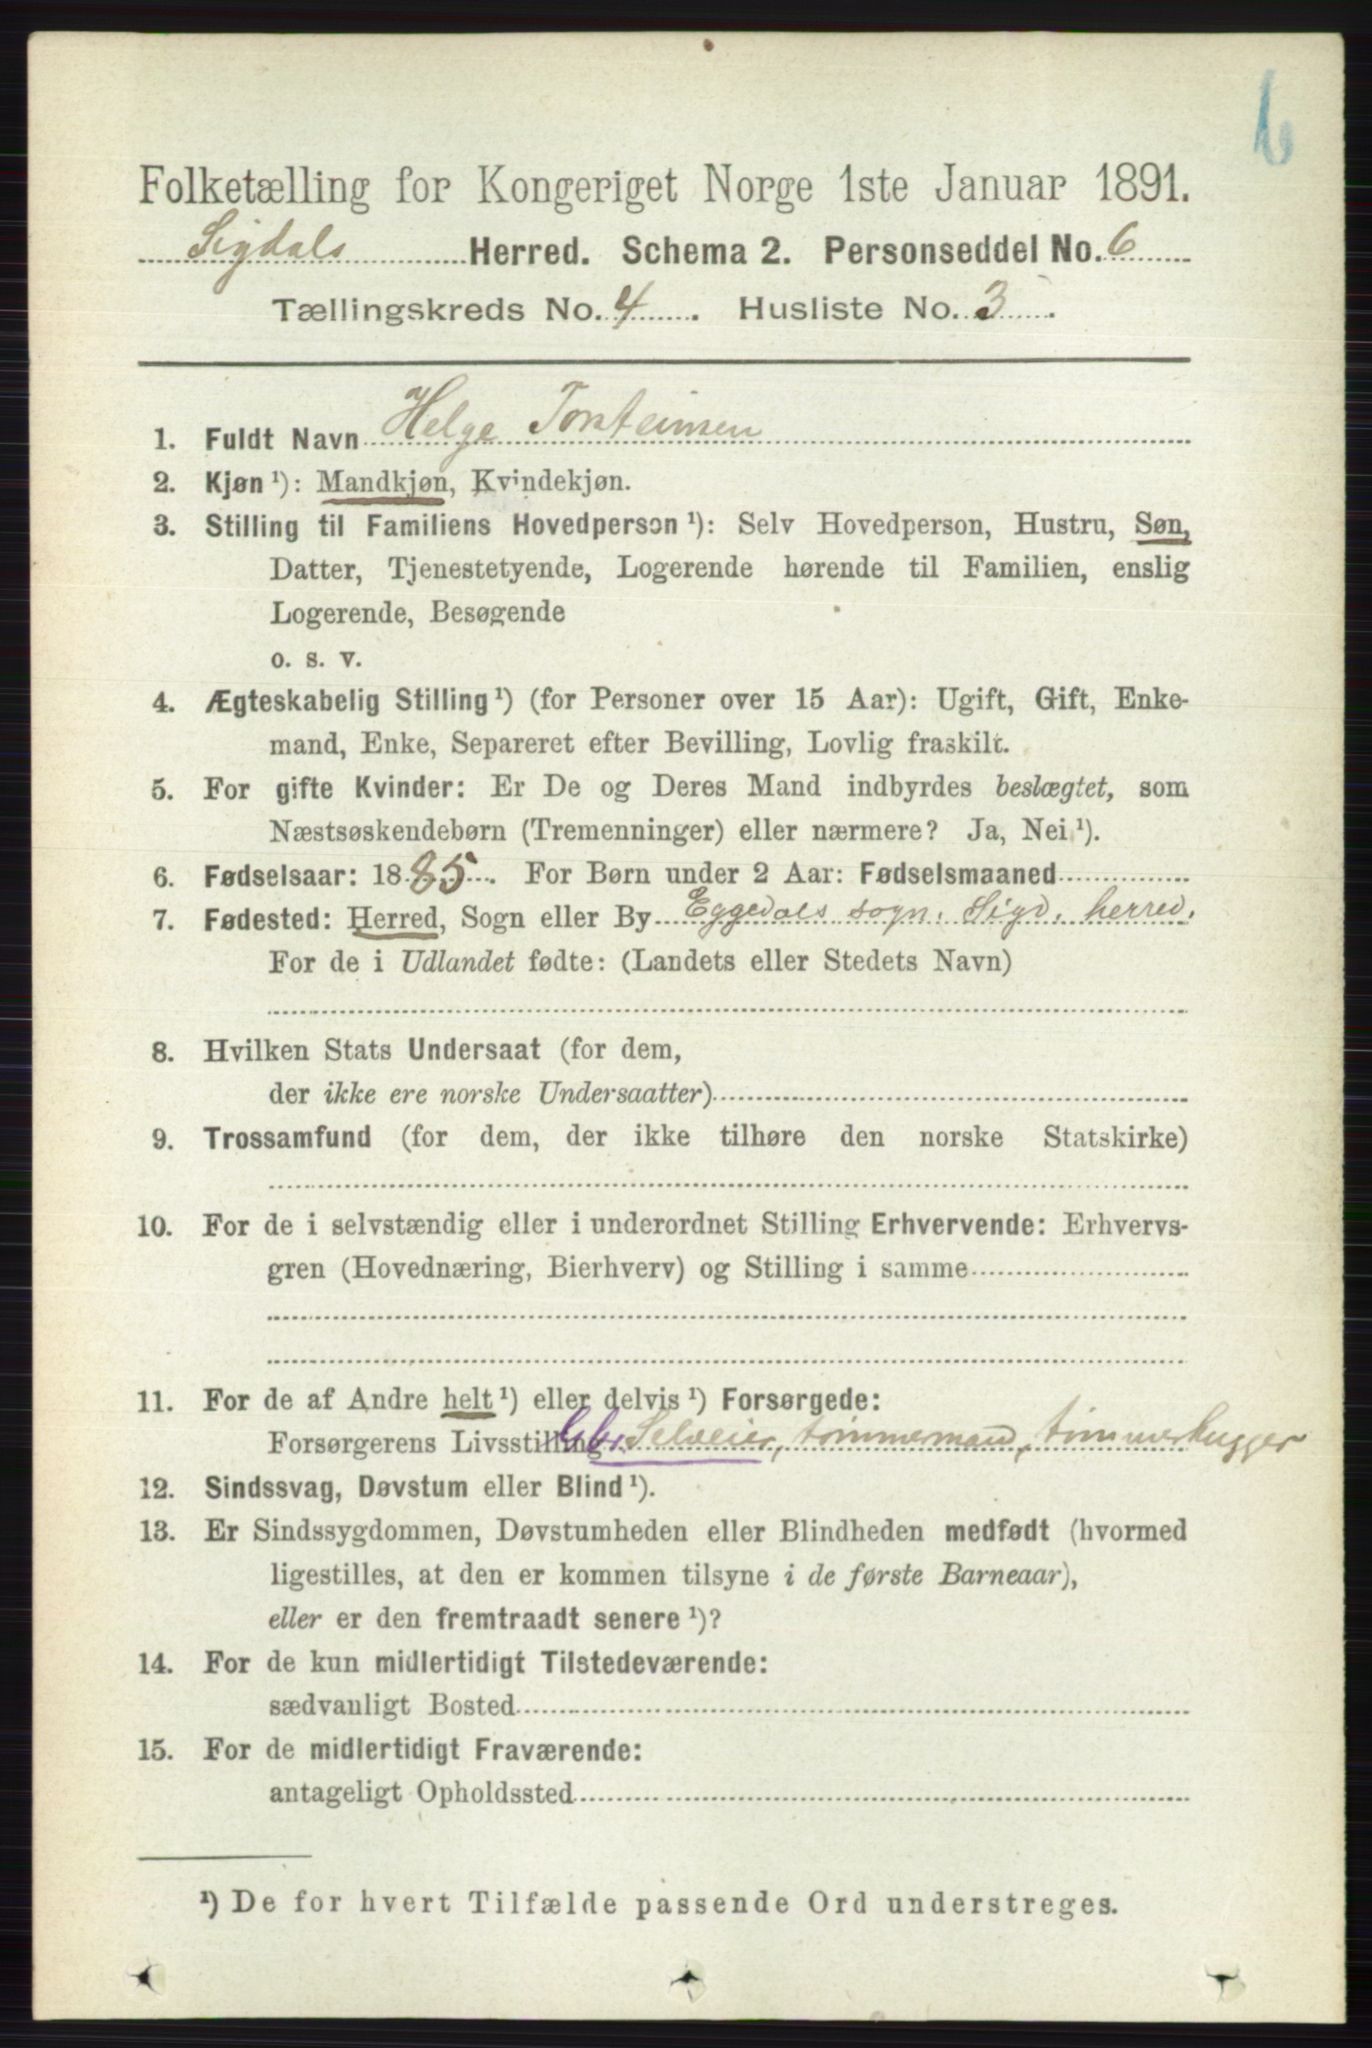 6
Folketælling for Kongeriget Norge 1ste Januar 1891.
Sigdals Herred. Schema 2. Personseddel No. 6
Tællingskreds No. 4. Husliste No. 3.
1. Fuldt Navn Helge Torsteinsen
2. Kjøn ¹): Mandkjøn, Kvindekjøn.
3. Stilling til Familiens Hovedperson ¹): Selv Hovedperson, Hustru, Søn,
Datter, Tjenestetyende, Logerende hørende til Familien, enslig
Logerende, Besøgende
o. s. v.
4. Ægteskabelig Stilling ¹) (for Personer over 15 Aar): Ugift, Gift, Enke-
mand, Enke, Separeret efter Bevilling, Lovlig fraskilt.
5. For gifte Kvinder: Er De og Deres Mand indbyrdes beslægtet, som
Næstsøskendebørn (Tremenninger) eller nærmere? Ja, Nei ¹).
6. Fødselsaar: 1885. For Børn under 2 Aar: Fødselsmaaned
7. Fødested: Herred, Sogn eller By Eggedals sogn. Sigd. herred.
For de i Udlandet fødte: (Landets eller Stedets Navn)
8. Hvilken Stats Undersaat (for dem,
der ikke ere norske Undersaatter)
9. Trossamfund (for dem, der ikke tilhøre den norske Statskirke)
10. For de i selvstændig eller i underordnet Stilling Erhvervende: Erhvervs-
gren (Hovednæring, Bierhverv) og Stilling i samme
11. For de af Andre helt ¹) eller delvis ¹) Forsørgede:
Forsørgerens Livsstilling Selveier, tømmermand, tømmerhugger
12. Sindssvag, Døvstum eller Blind ¹).
13. Er Sindssygdommen, Døvstumheden eller Blindheden medfødt (hvormed
ligestilles, at den er kommen tilsyne i de første Barneaar),
eller er den fremtraadt senere ¹)?
14. For de kun midlertidigt Tilstedeværende:
sædvanligt Bosted
15. For de midlertidigt Fraværende:
antageligt Opholdssted
¹) De for hvert Tilfælde passende Ord understreges.